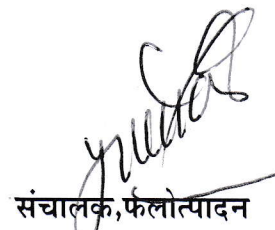 संचालक,फलोत्पादन